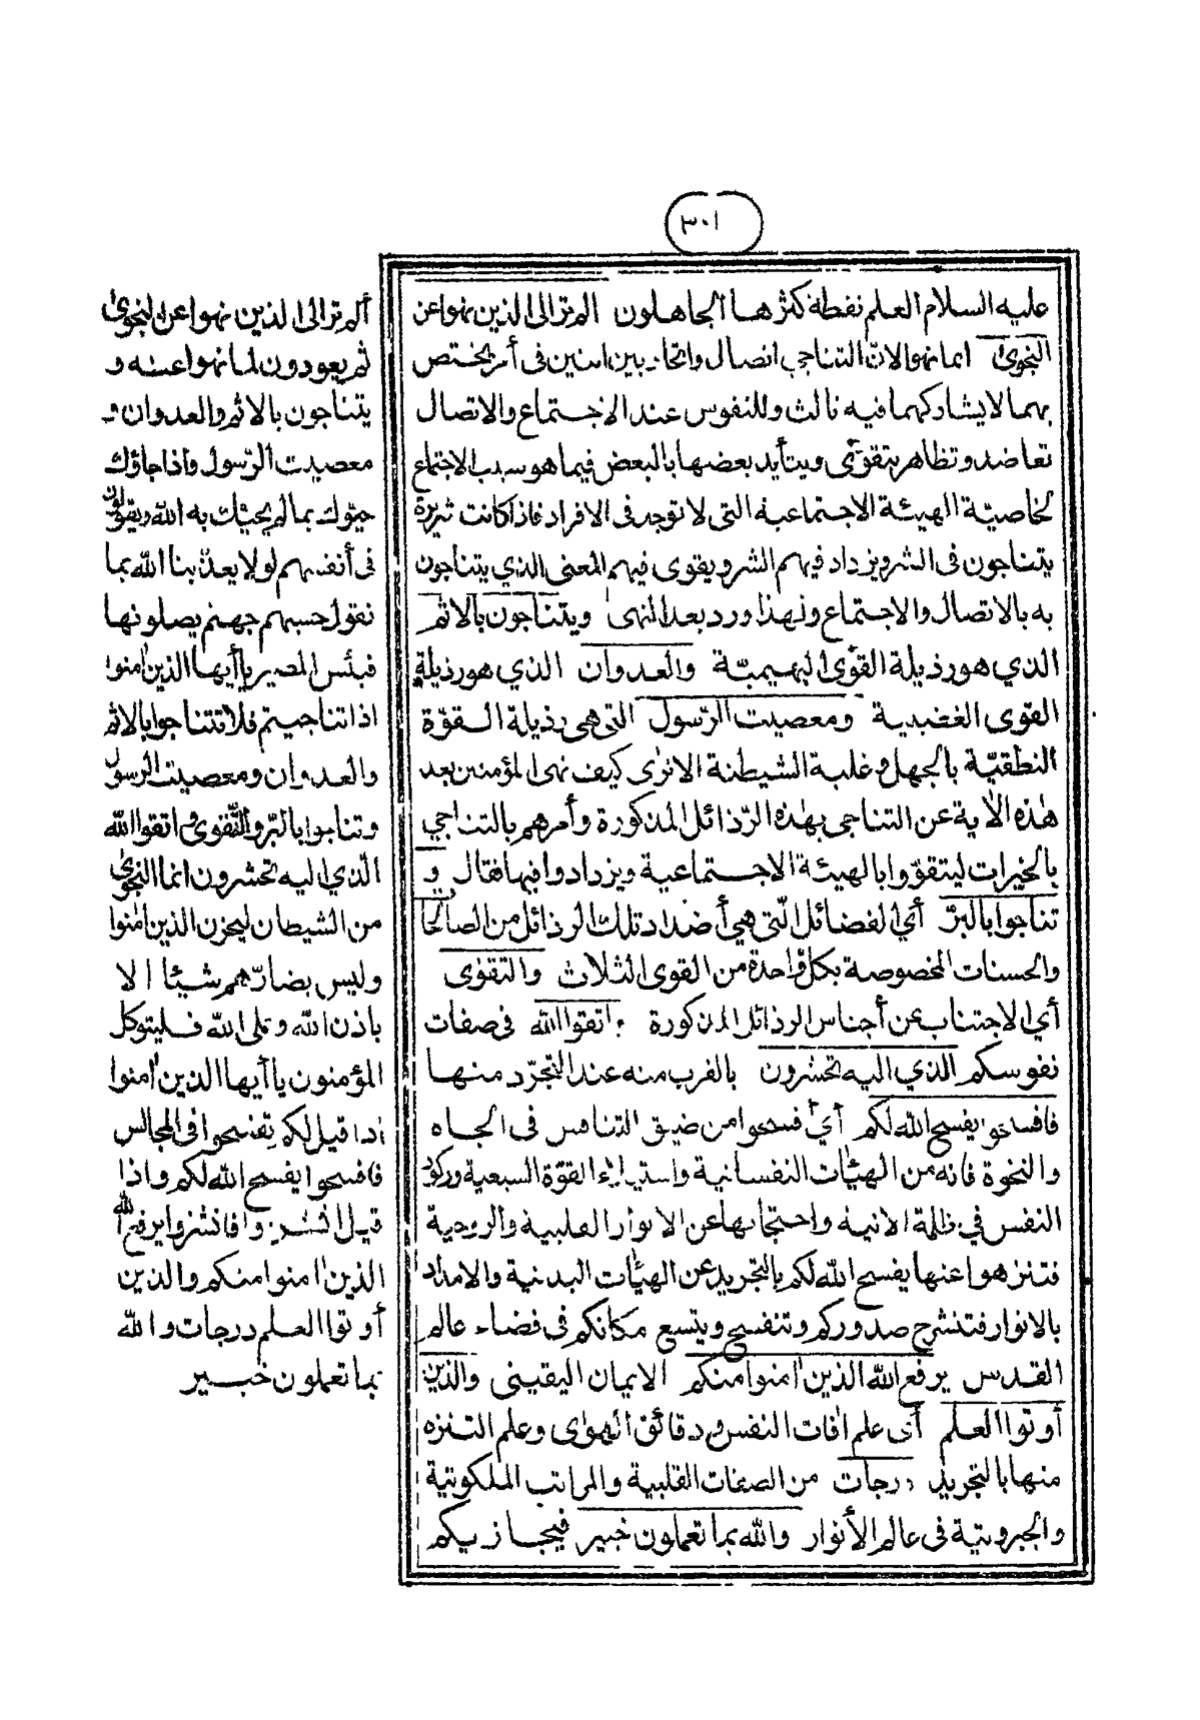 ٣٠١
عليه السلام العلم نقطة كثرها الجاهلون ألم تر الى الذين نهوا عن
النجوى انما نهوا لان التناجي اتصال واتحاد بين اثنين في أمر يختص
بهما لا يشاركهما فيه ثالث وللنفوس عند الاجتماع والاتصال
تعاضد وتظاهر يتقوى ويتأيد بعضها بالبعض فيما هو سبب الاجتماع
لخاصيّة الهيئة الاجتماعية التى لا توجد فى الافراد فاذا كانت شريرة
يتناجون فى الشر ويزداد فيهم الشر ويقوى فيهم المعنى الذي يتناجون
به بالاتصال والاجتماع ولهذا ورد بعد النهى ويتناجون بالاثم
الذي هو رذيلة القوى البهيميّة والعدوان الذي هو رذيلة
القوى الغضبية ومعصيت الرّسول التى هى رذيلة القوّة
النطقيّة بالجهل وغلبة الشيطنة الا ترى كيف نهى المؤمنين بعد
هذه الآية عن التناجى بهذه الرّذائل المذكورة وأمرهم بالتناجي
بالخيرات ليتقوّوا بالهيئة الاجتماعية ويزدادوا فيها فقال و
تناجوا بالبرّ أي الفضائل الّتى هي أضداد تلك الرذائل من الصالحات
والحسنات المخصوصة بكل واحدة من القوى الثلاث والتقوى
أي الاجتناب عن أجناس الرذائل المذكورة واتقوا الله فى صفات
نفوسكم الذي اليه تحشرون بالقرب منه عند التجرّد منها
فافسحوا يفسح الله لكم أي فسحوا من ضيق التنافس فى الجاه
والنخوة فانه من الهيئات النفسانية واستيلاء القوّة السبعية وركود
النفس في ظلمة الانية واحتجابها عن الانوار القلبية والروحية
فتنزهوا عنها يفسح الله لكم بالتجريد عن الهيئات البدنية والامداد
بالانوار فتنشرح صدوركم وتنفسح ويتسع مكانكم فى فضاء عالم
القدس يرفع الله الذين آمنوا منكم الايمان اليقينى والذين
أوتوا العلم أى علم آفات النفس ودقائق الهوى وعلم التنزه
منها بالتجريد درجات من الصفات القلبية والمراتب الملكوتية
والجبروتية فى عالم الأنوار والله بما تعملون خبير فيجازيكم
ألم تر الى الذين نهوا عن النجوى
ثم يعودون لما نهوا عنه و
يتناجون بالاثم والعدوان و
معصيت الرّسول واذا جاؤك
حيّوك بما لم يحيّك به الله ويقولون
فى أنفسهم لولا يعذّبنا الله بما
نقول حسبهم جهنم يصلونها
فبئس المصير يا أيها الذين آمنوا
اذا تناجيتم فلا تتناجوا بالاثم
والعدوان ومعصيت الرسول
وتناجوا بالبرّ والتّقوى واتقوا الله
الّذي اليه تحشرون انما النجوى
من الشيطان ليحزن الذين آمنوا
وليس بضارّهم شيئا الا
باذن الله وعلى الله فليتوكل
المؤمنون يا أيها الذين آمنوا
اذا قيل لكم تفسحوا فى المجالس
فافسحوا يفسح الله لكم واذا
قيل انشزوا فانشزوا يرفع الله
الذين آمنوا منكم والذين
أوتوا العلم درجات والله
بما تعملون خبير